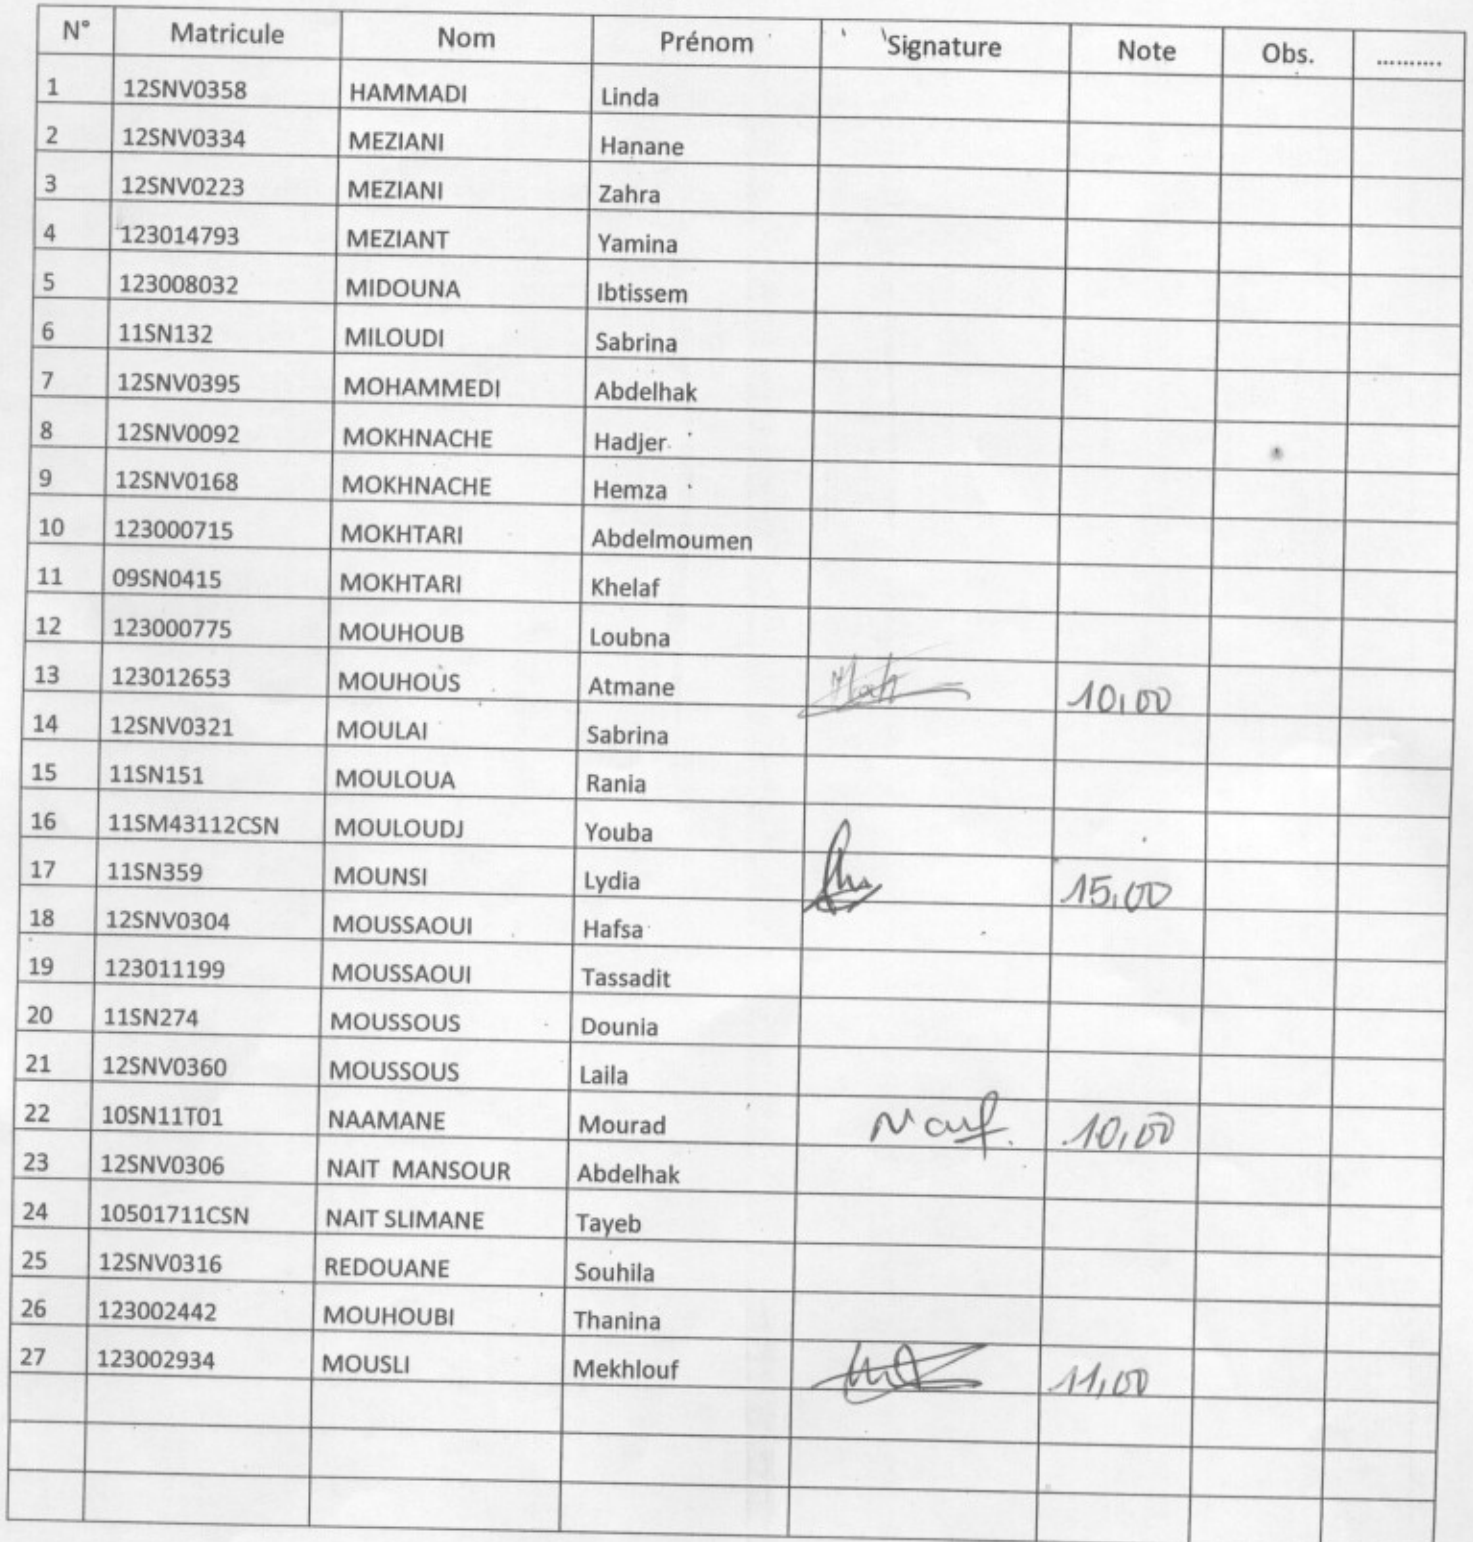 N° Matricule Nom Prénom Signature Note Obs. ..........
1 12SNV0358 HAMMADI Linda
2 12SNV0334 MEZIANI Hanane
3 12SNV0223 MEZIANI Zahra
4 123014793 MEZIANT Yamina
5 123008032 MIDOUNA Ibtissem
6 11SN132 MILOUDI Sabrina
7 12SNV0395 MOHAMMEDI Abdelhak
8 12SNV0092 MOKHNACHE Hadjer
9 12SNV0168 MOKHNACHE Hemza
10 123000715 MOKHTARI Abdelmoumen
11 09SN0415 MOKHTARI Khelaf
12 123000775 MOUHOUB Loubna
13 123012653 MOUHOUS Atmane 10,00
14 12SNV0321 MOULAI Sabrina
15 11SN151 MOULOUA Rania
16 11SM43112CSN MOULOUDJ Youba
17 11SN359 MOUNSI Lydia 15,00
18 12SNV0304 MOUSSAOUI Hafsa
19 123011199 MOUSSAOUI Tassadit
20 11SN274 MOUSSOUS Dounia
21 12SNV0360 MOUSSOUS Laila
22 10SN11T01 NAAMANE Mourad 10,00
23 12SNV0306 NAIT MANSOUR Abdelhak
24 10501711CSN NAIT SLIMANE Tayeb
25 12SNV0316 REDOUANE Souhila
26 123002442 MOUHOUBI Thanina
27 123002934 MOUSLI Mekhlouf 11,00